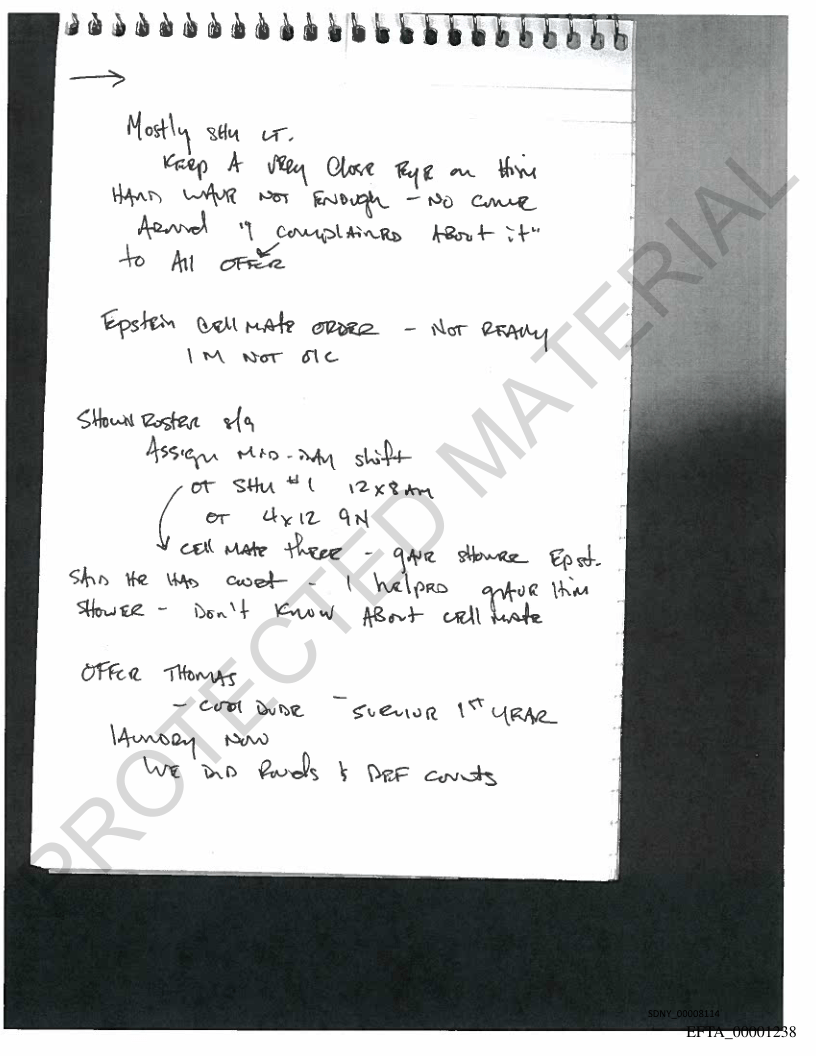 →
Mostly SHU LT.
Keep A very Close Eye on Him
HAND WAVE NOT ENOUGH – NO COME
Around "I complained About it"
to All OFFER
Epstein Cell Mate ORDER – NOT REALLY
I M NOT OIC
SHOWN Roster 8/9
Assign MID-DAY shift
OT SHU #1 12x8 AM
OT 4x12 9N
CELL MATE there – gAVE SHOWER Epst.
SAID HE HAD – I helped gAVE Him
SHOWER – Don't Know About cell mate
OFFCR THOMAS
– COOL DUDE – 1ST YEAR
LAUNDRY NOW
WE DID Rounds & Counts
PROTECTED MATERIAL
SDNY_00008114
EFTA_00001238